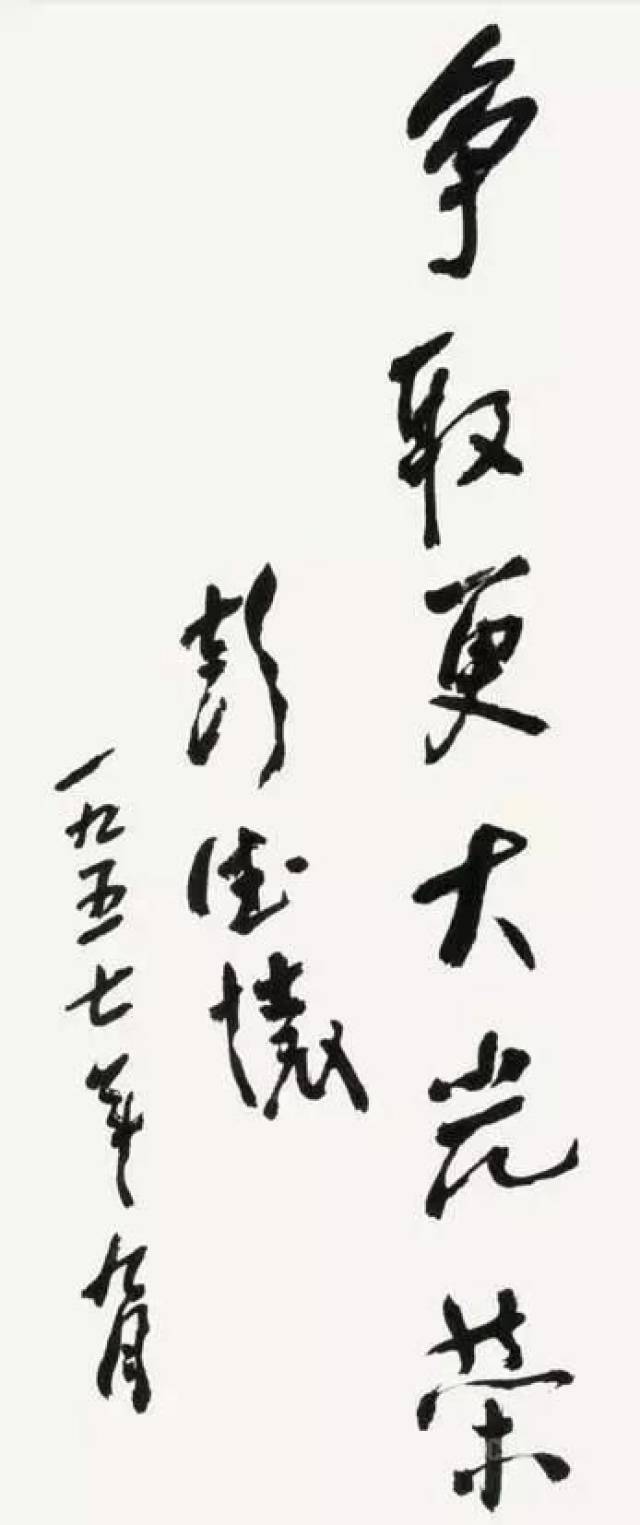 争取更大光荣
彭德怀
一九五七年九月